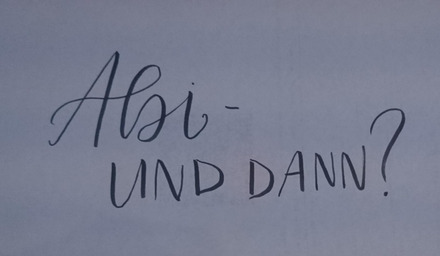 Abi-
UND DANN?